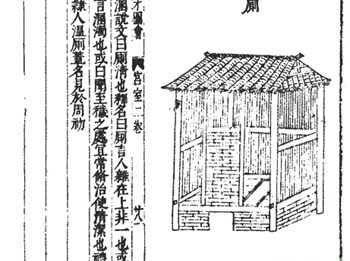 厠
才圖會 宮室二卷 廿八
溷說文曰厠清也釋名曰厠言人雜在上非一也或
言溷濁也或曰圊至穢之處宜常修治使潔清也禮
隸人涅厠葢名見於周初